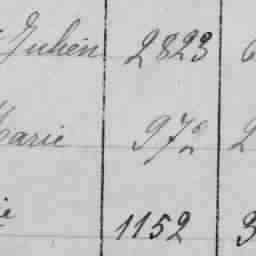 Julien 2823 6
Marie 972 2
ie 1152 3